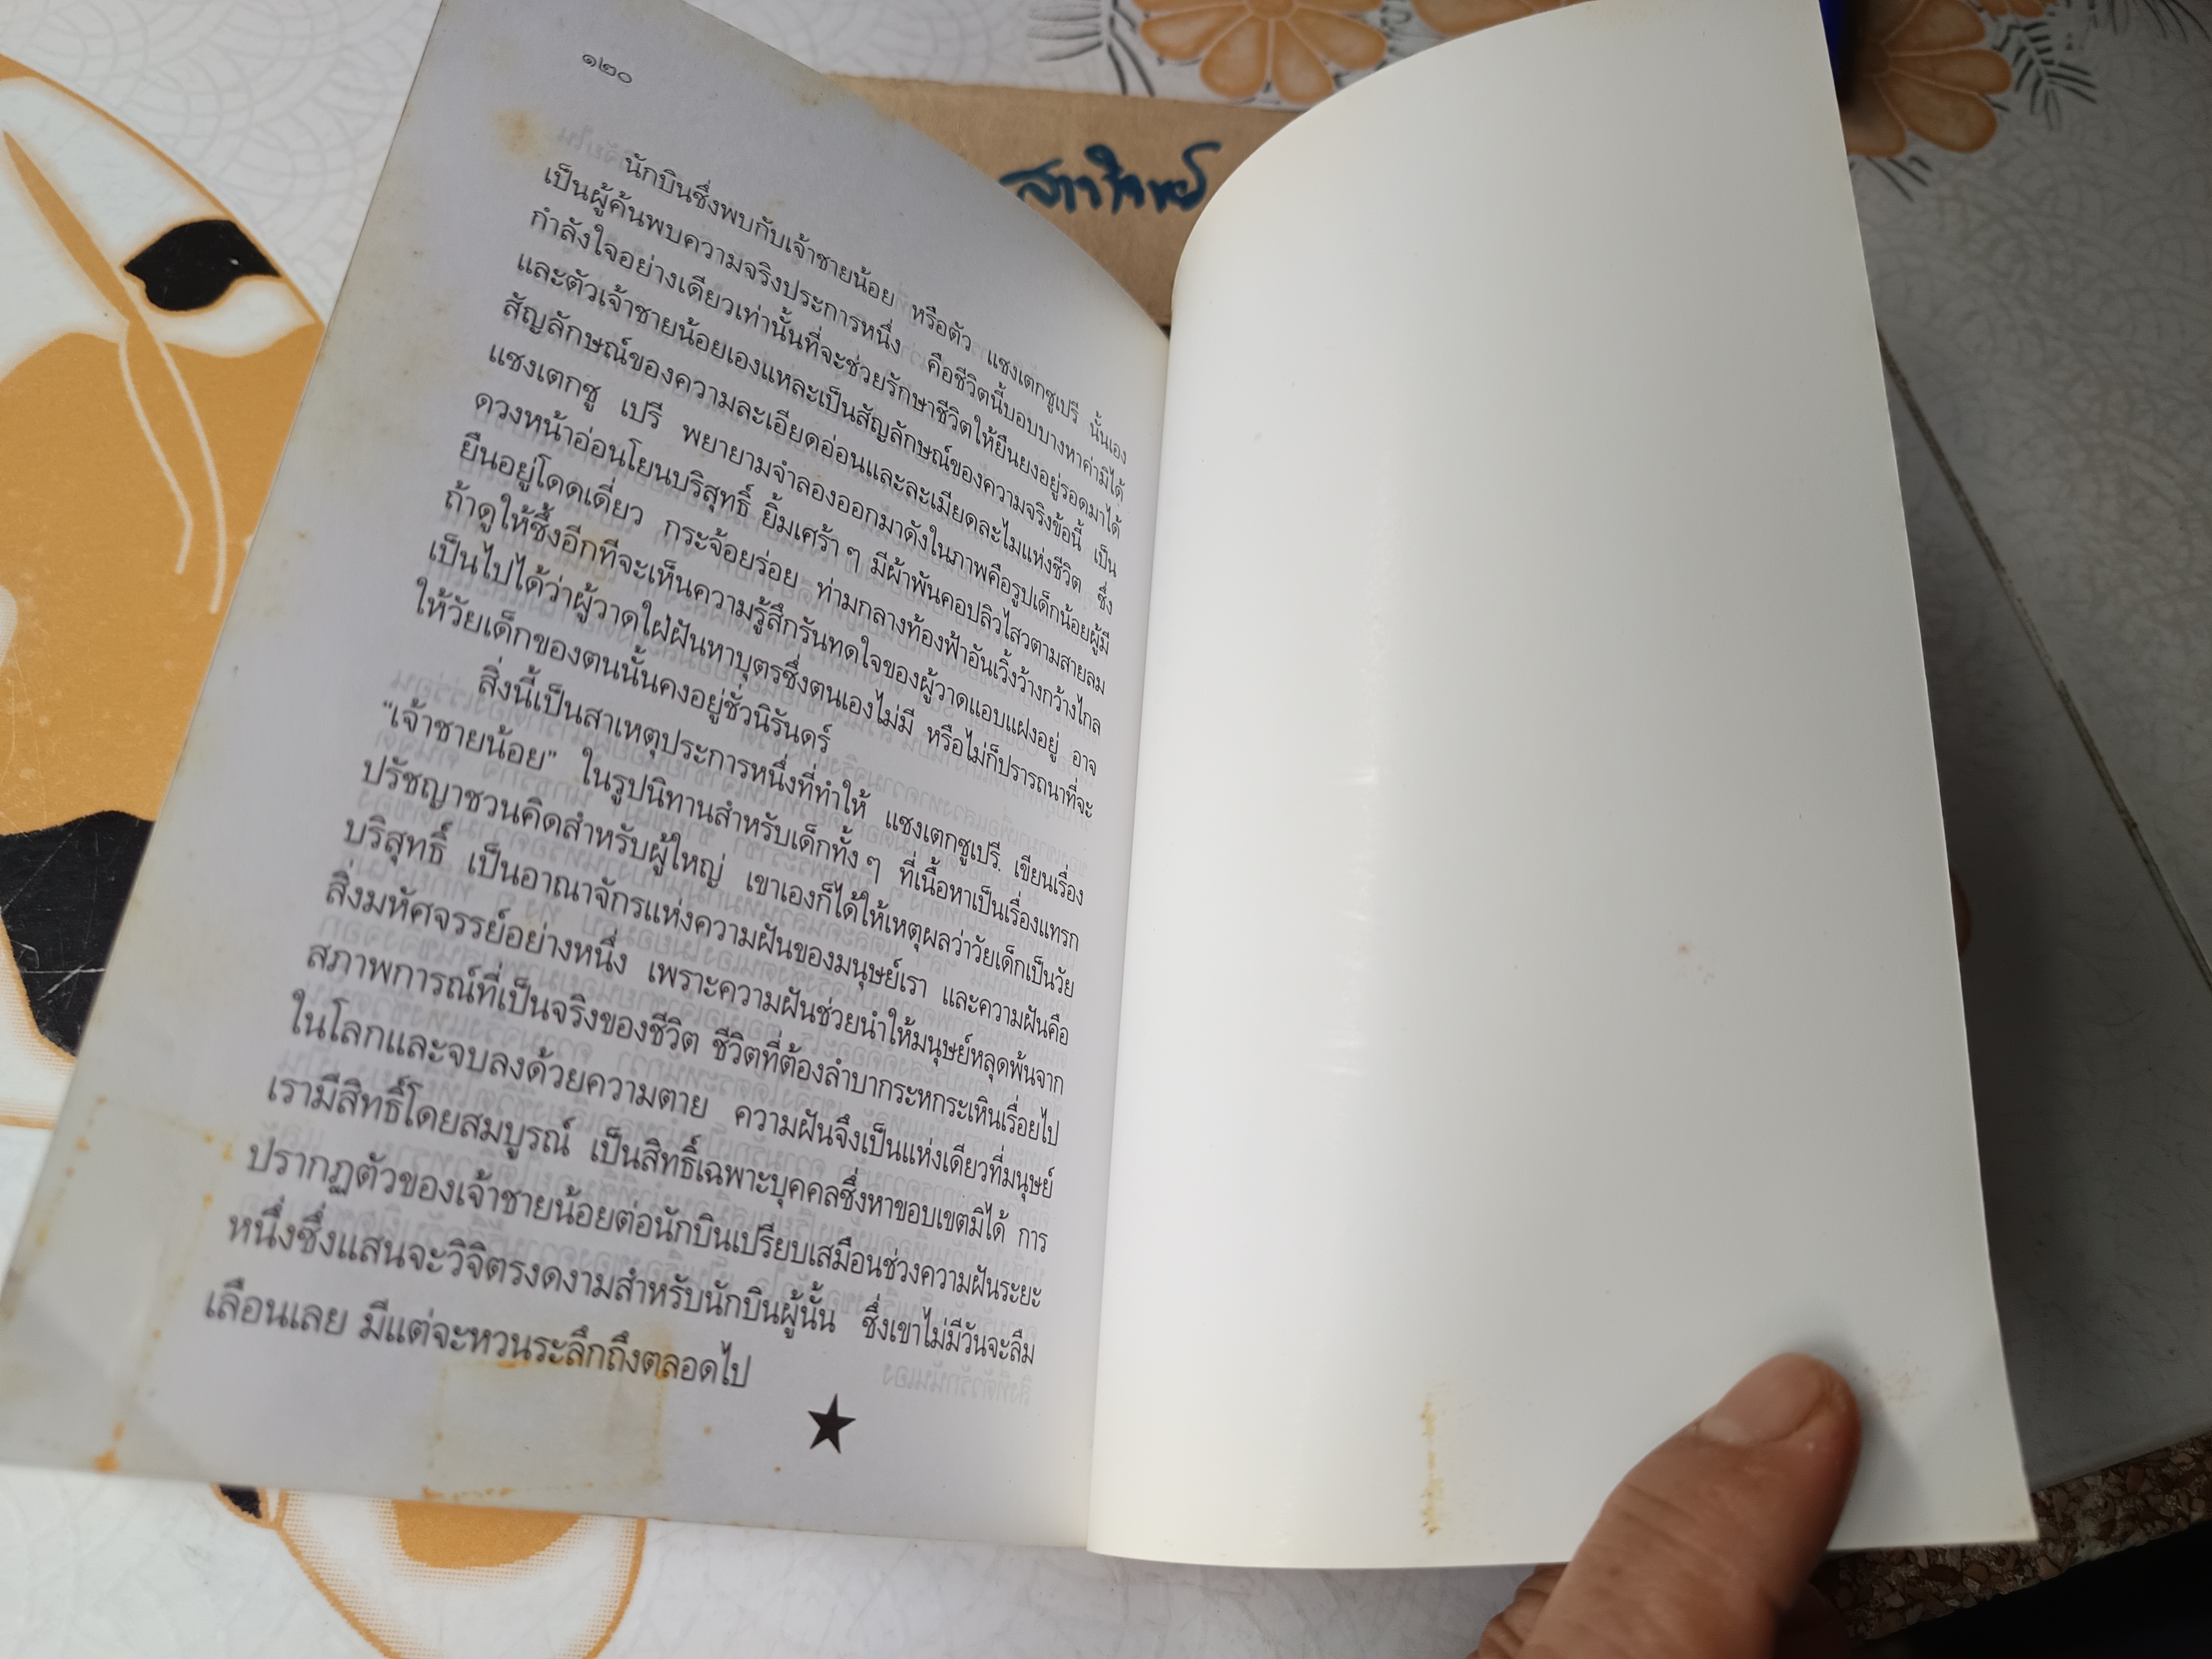 ๑๒๐
นักบินซึ่งพบกับเจ้าชายน้อย หรือตัว แซงเตกซูเปรี นั้นเอง
เป็นผู้ค้นพบความจริงประการหนึ่ง คือชีวิตนี้บอบบางหาค่ามิได้
กำลังใจอย่างเดียวเท่านั้นที่จะช่วยรักษาชีวิตให้ยืนยงอยู่รอดมาได้
และตัวเจ้าชายน้อยเองแหละเป็นสัญลักษณ์ของความจริงข้อนี้ เป็น
สัญลักษณ์ของความละเอียดอ่อนและละเมียดละไมแห่งชีวิต ซึ่ง
แซงเตกซู เปรี พยายามจำลองออกมาดังในภาพคือรูปเด็กน้อยผู้มี
ดวงหน้าอ่อนโยนบริสุทธิ์ ยิ้มเศร้า ๆ มีผ้าพันคอปลิวไสวตามสายลม
ยืนอยู่โดดเดี่ยว กระจ้อยร่อย ท่ามกลางท้องฟ้าอันเวิ้งว้างกว้างไกล
ถ้าดูให้ซึ้งอีกทีจะเห็นความรู้สึกรันทดใจของผู้วาดแอบแฝงอยู่ อาจ
เป็นไปได้ว่าผู้วาดใฝ่ฝันหาบุตรซึ่งตนเองไม่มี หรือไม่ก็ปรารถนาที่จะ
ให้วัยเด็กของตนนั้นคงอยู่ชั่วนิรันดร์
สิ่งนี้เป็นสาเหตุประการหนึ่งที่ทำให้ แซงเตกซูเปรี เขียนเรื่อง
“เจ้าชายน้อย” ในรูปนิทานสำหรับเด็กทั้ง ๆ ที่เนื้อหาเป็นเรื่องแทรก
ปรัชญาชวนคิดสำหรับผู้ใหญ่ เขาเองก็ได้ให้เหตุผลว่าวัยเด็กเป็นวัย
บริสุทธิ์ เป็นอาณาจักรแห่งความฝันของมนุษย์เรา และความฝันคือ
สิ่งมหัศจรรย์อย่างหนึ่ง เพราะความฝันช่วยนำให้มนุษย์หลุดพ้นจาก
สภาพการณ์ที่เป็นจริงของชีวิต ชีวิตที่ต้องลำบากระหกระเหินเรื่อยไป
ในโลกและจบลงด้วยความตาย ความฝันจึงเป็นแห่งเดียวที่มนุษย์
เรามีสิทธิ์โดยสมบูรณ์ เป็นสิทธิ์เฉพาะบุคคลซึ่งหาขอบเขตมิได้ การ
ปรากฏตัวของเจ้าชายน้อยต่อนักบินเปรียบเสมือนช่วงความฝันระยะ
หนึ่งซึ่งแสนจะวิจิตรงดงามสำหรับนักบินผู้นั้น ซึ่งเขาไม่มีวันจะลืม
เลือนเลย มีแต่จะหวนระลึกถึงตลอดไป